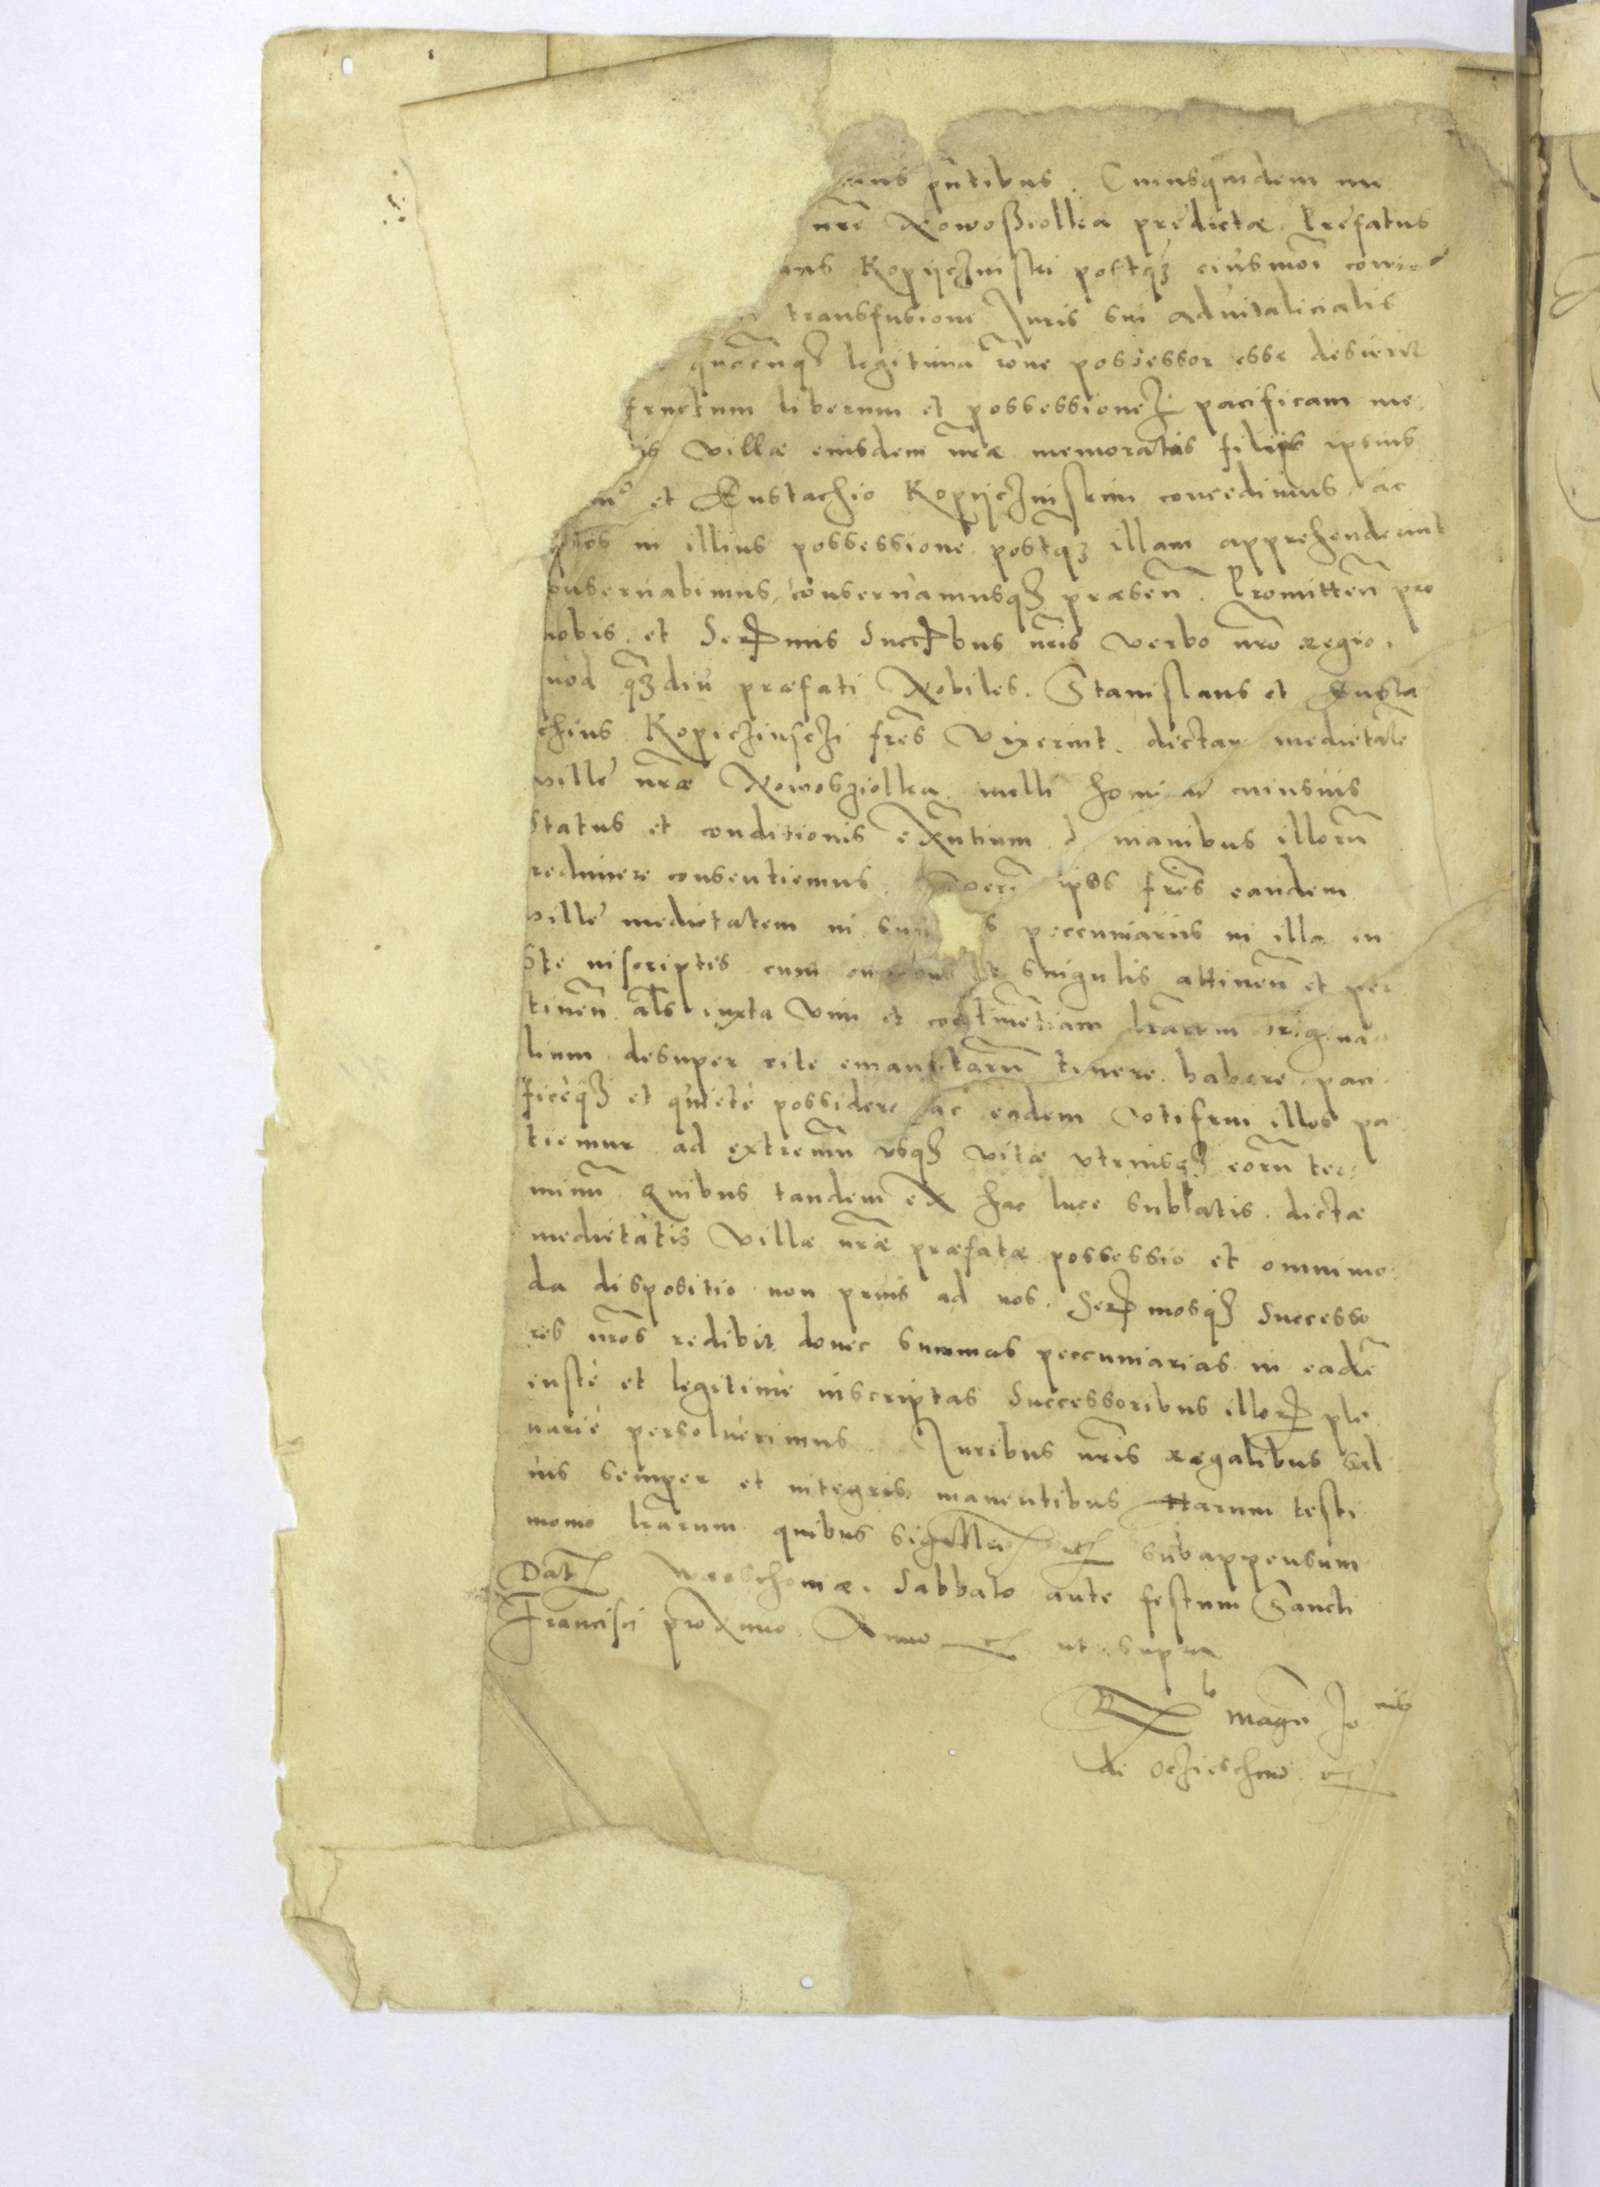 pntibus. Cuiusquidem me
nre Nowoßiolka predictæ. Prefatus
Kopijczinski postqz eiusmoi
transfusionem Juris sui aduitalicialis
quocunqz legitima rone possessor esse desierit
fructum liberum et possessionez pacificam me
villæ eiusdem nræ memoratis filijs ipsius
et Eustachio Kopijczinskim concedimus ac
in illius possessione postqz illam apprehenderint
onseruabimus, conseruamusqz præsen. Promitten pro
nobis et Sermis Succbus nris verbo nro regio.
uod qzdiu præfati Nobiles. Stanislaus et Eusta
chius Kopiczinsczi fres vixerint. dictam medietate
ville nræ Nowosziolka nulli homi cuiusuis
status et conditionis exntium d manibus illoru
redimere consentiemus. ipsos fres eandem
ville medietatem in sum s peccuniariis in illa iu
ste inscriptis cum omnibus et singulis attinen et per
tinen als iuxta vim et continentiam lrarum origina
lium desuper rite emanataru tenere. habere. paci
ficeqz et quiete possidere ac eadem potifrui illos pa
tiemur ad extremu vsqz vitæ vtriusqz eoru ter
minu. Quibus tandem ex hac luce sublatis. dictæ
medietatis villæ nræ præfatæ possessio et omnimo
da dispositio non prius ad nos. Sermosqz Successo
res nros redibit donec summas peccuniarias in eade
iuste et legitime inscriptas Successoribus illor ple
narie persoluerimus. Juribus nris regalibus sal
uis semper et integris manentibus Harum testi
monio lrarum quibus sigillu est subappensum
Dat Warschouiæ. Sabbato ante festum Sancti
Francisci proximo. Anno ut supra
magci Jo nis
de Oczieschino